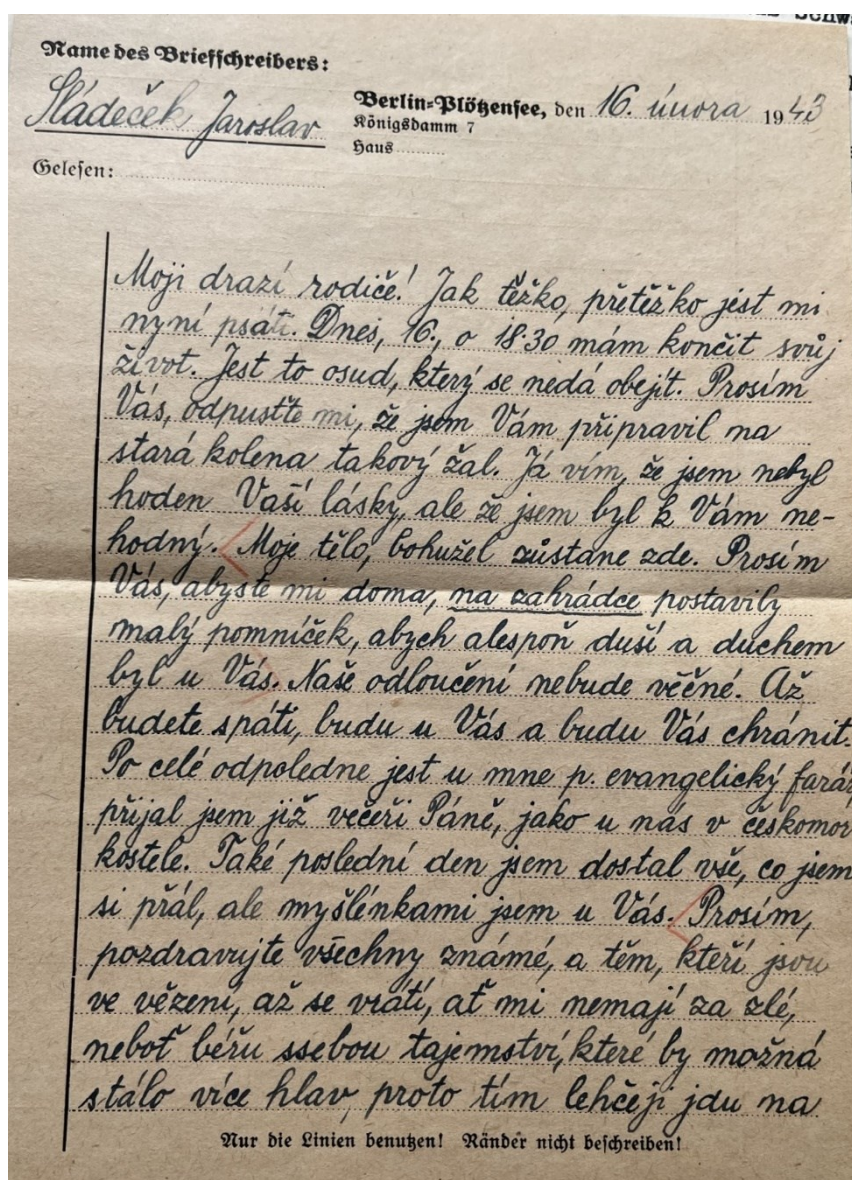 Name des Briefschreibers:
Sládeček Jaroslav
Berlin-Plötzensee, den 16. února 1943
Königsdamm 7
Haus
Gelesen:
Moji drazí rodiče! Jak těžko, přetěžko jest mi
nyní psáti. Dnes, 16., o 18.30 mám končit svůj
život. Jest to osud, který se nedá obejít. Prosím
Vás, odpusťte mi, že jsem Vám připravil na
stará kolena takový žal. Já vím, že jsem nebyl
hoden Vaší lásky, ale že jsem byl k Vám ne-
hodný. Moje tělo, bohužel zůstane zde. Prosím
Vás, abyste mi doma, na zahrádce postavily
malý pomníček, abych alespoň duší a duchem
byl u Vás. Naše odloučení nebude věčné. Až
budete spáti, budu u Vás a budu Vás chránit.
Po celé odpoledne jest u mne p. evangelický farář
přijal jsem již večeři Páně, jako u nás v českomor
kostele. Také poslední den jsem dostal vše, co jsem
si přál, ale myšlénkami jsem u Vás. Prosím,
pozdravujte všechny známé, a těm, kteří jsou
ve vězení, až se vrátí, ať mi nemají za zlé,
neboť béřu ssebou tajemství, které by možná
stálo více hlav, proto tím lehčeji jdu na
Nur die Linien benutzen! Ränder nicht beschreiben!